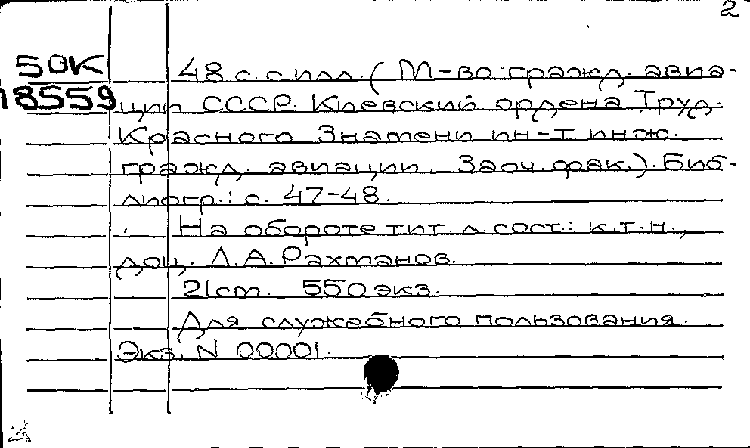 2
50К 48 с. с илл. (М-во гражд. авиа-
18559 ции СССР. Киевский ордена Труд.
Красного Знамени ин-т инж.
гражд. авиации. Заоч. фак.). Биб-
лиогр.: с. 47-48.
На обороте тит. л. сост.: к.т.н.,
доц. Л.А. Рахманов.
21cm. 550 экз.
Для служебного пользования.
Экз. N 00001.